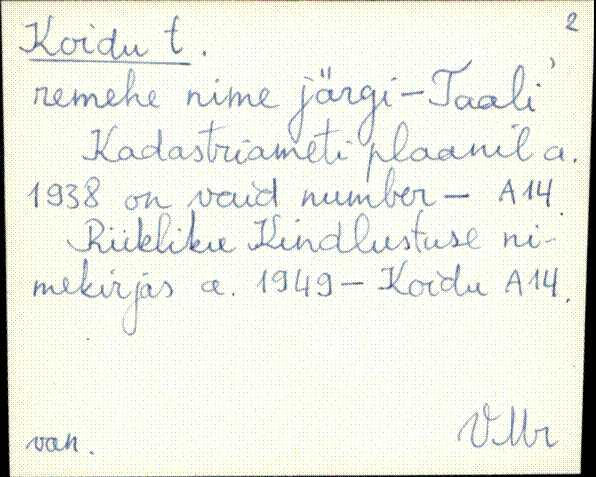 2
Koidu t.
remehe nime järgi - Taali'
Kadastriameti plaanil a.
1938 on vaid number - A14.
Riikliku Kindlustuse ni-
mekirjas a. 1949 - Koidu A14.
van.
VMr